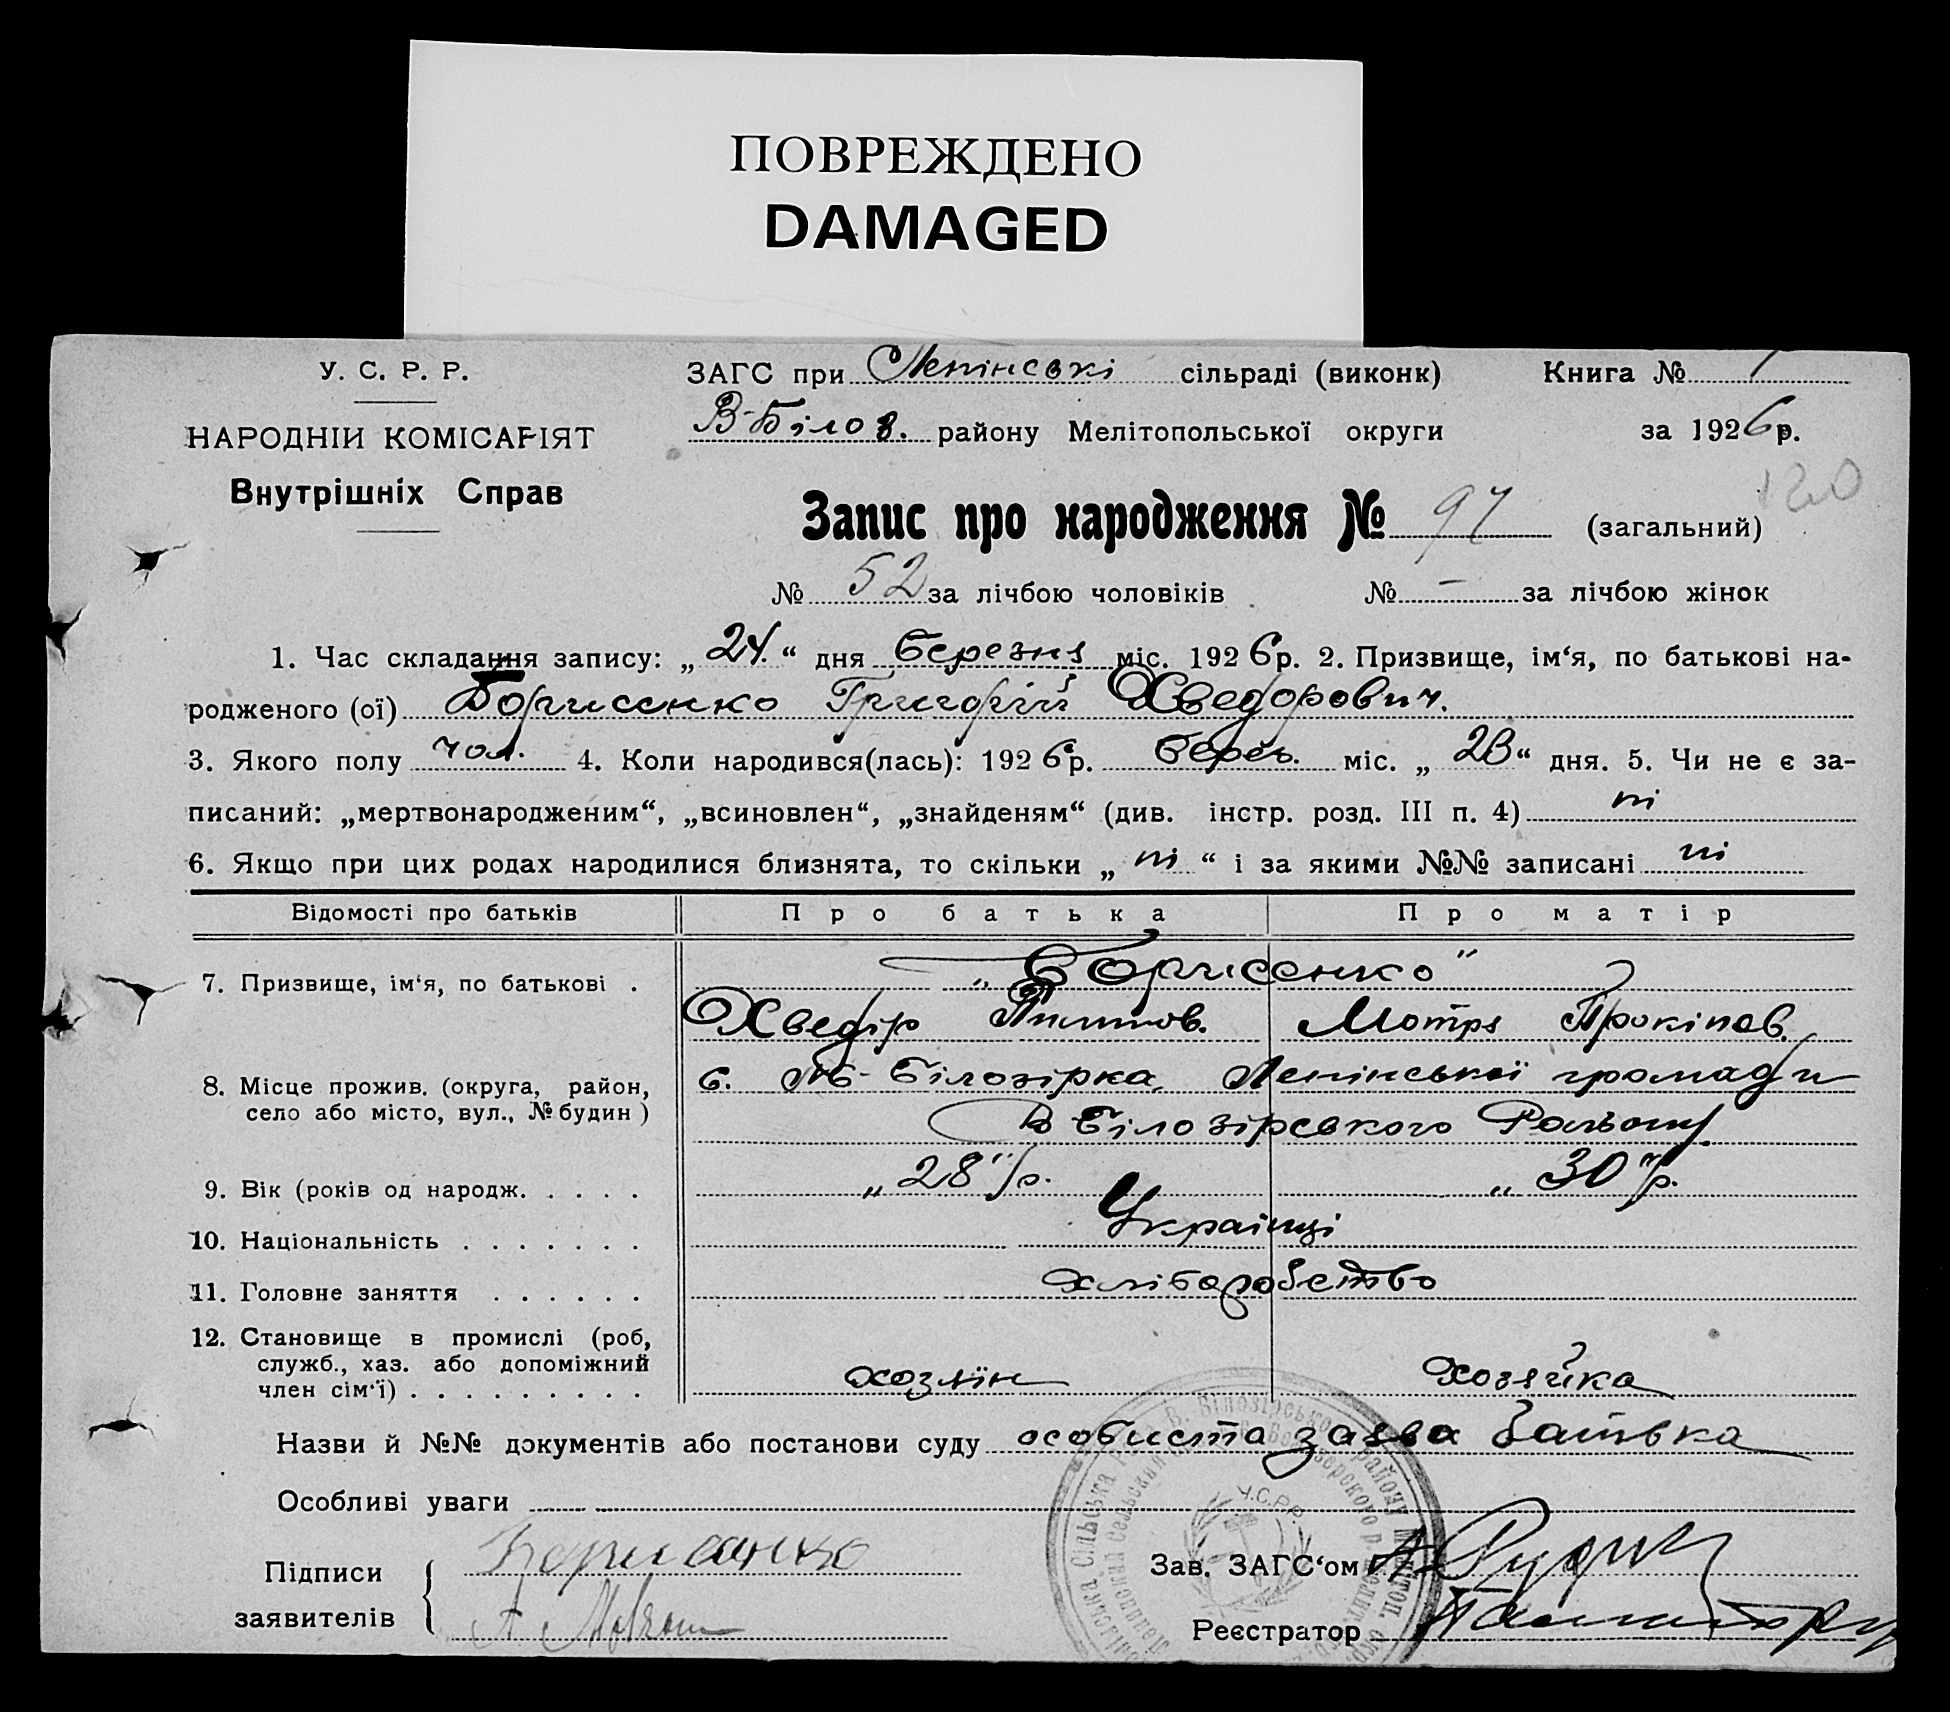 ПОВРЕЖДЕНО
DAMAGED
У. С. Р. Р.
НАРОДНІЙ КОМІСАРІЯТ
Внутрішніх Справ
ЗАГС при Ленінські сільраді (виконк) Книга № 1
В-Білоз. району Мелітопольської округи за 1926 р.
120
Запис про народження № 97 (загальний)
№ 52 за лічбою чоловіків № – за лічбою жінок
1. Час складання запису: „24“ дня березня міс. 1926 р. 2. Призвище, ім‘я, по батькові на-
родженого (ої) Борисенко Григорій Хведорович.
3. Якого полу чол. 4. Коли народився(лась): 1926 р. берез. міс. „23“ дня. 5. Чи не є за-
писаний: „мертвонародженим“, „всиновлен“, „знайденям“ (див. інстр. розд. III п. 4) ні
6. Якщо при цих родах народилися близнята, то скільки „ні“ і за якими №№ записані ні
Відомості про батьків Про батька Про матір
7. Призвище, ім‘я, по батькові . „Борисенко“
Хведір Пилипов. Мотря Прокіпов.
8. Місце прожив. (округа, район, с. Білозірка, Ленінської громади
село або місто, вул., № будин) В Білозірського Району.
9. Вік (років од народж. . . . . „28“ р. „30“ р.
10. Національність . . . . . . . Українці
11. Головне заняття . . . . . . хліборобство
12. Становище в промислі (роб,
служб., хаз. або допоміжний
член сім‘ї) . . . . . . . . . хозяїн хозяйка
Назви й №№ документів або постанови суду особиста заява батька
Особливі уваги
Підписи Борисенко Зав. ЗАГС‘ом
заявителів Реєстратор
У.С.Р.Р.